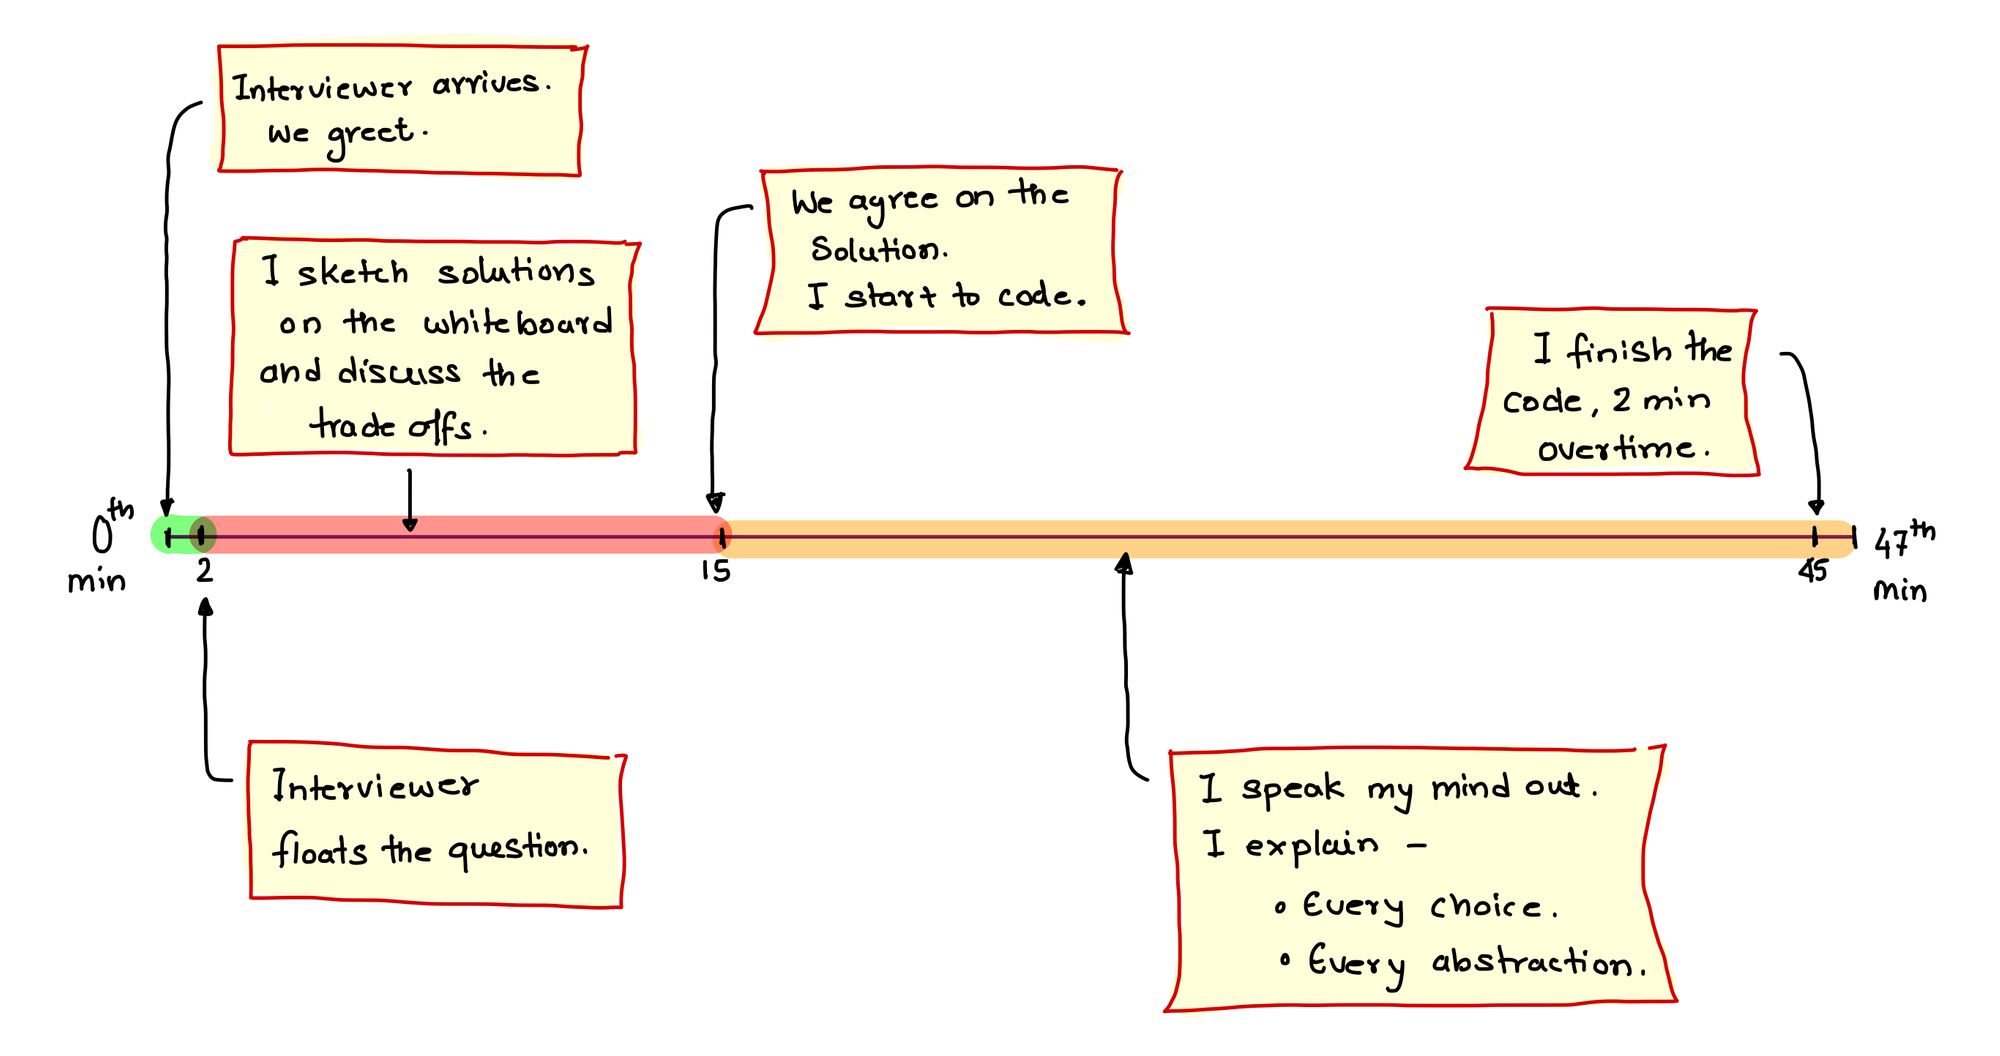 Interviewer arrives.
We greet.
I sketch solutions
on the whiteboard
and discuss the
trade offs.
We agree on the
Solution.
I start to code.
I finish the
code, 2 min
overtime.
0th
min
2
15
45
47th
min
Interviewer
floats the question.
I speak my mind out.
I explain -
• Every choice.
• Every abstraction.